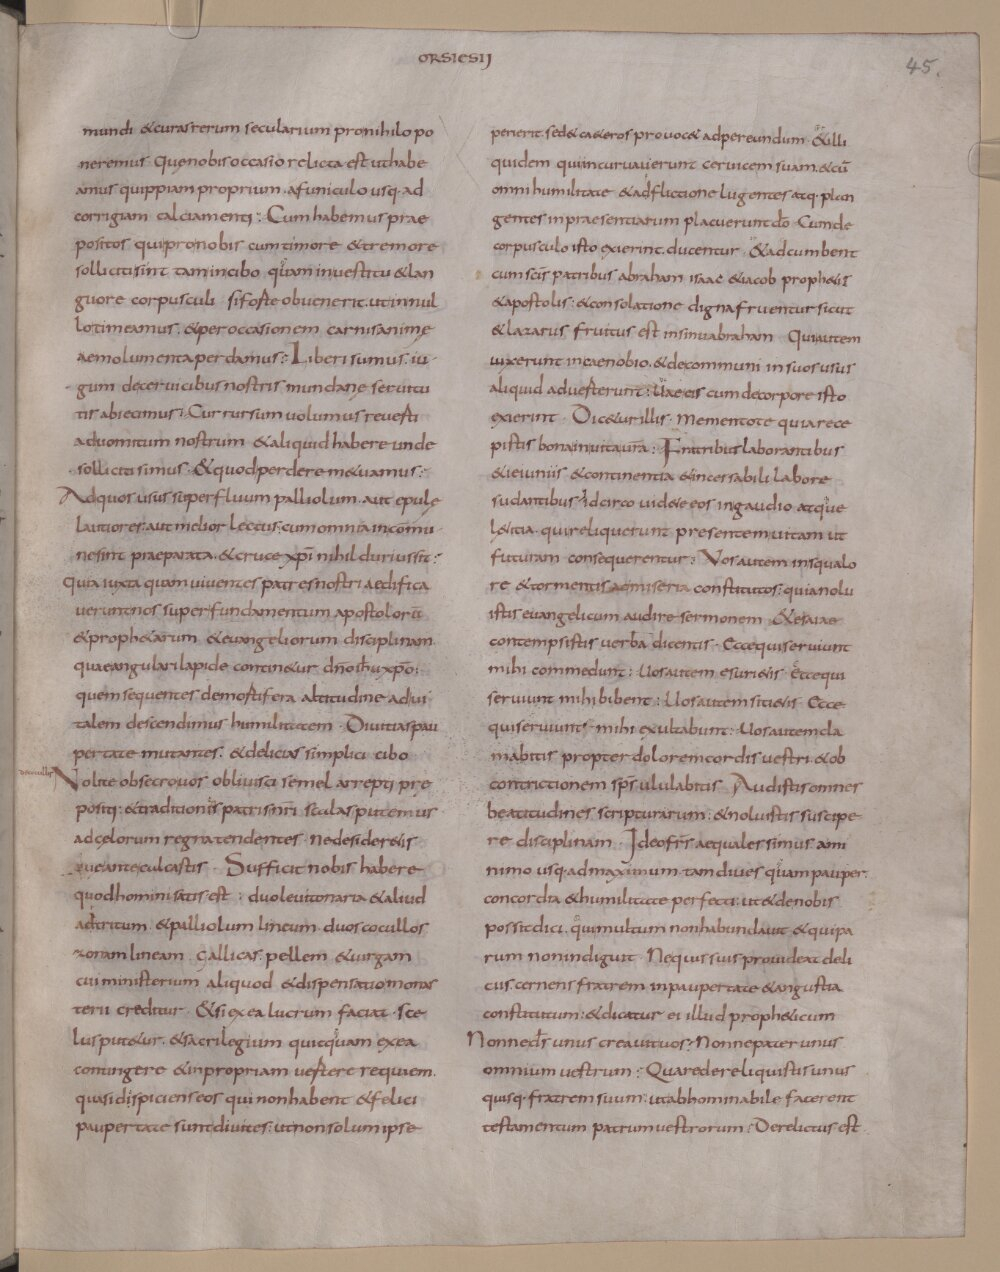 ORSIESII
45.
mundi & curas rerum secularium pro nihilo po
neremus. Que nobis occasio relicta est ut habe
amus quippiam proprium. a funiculo usq. ad
corrigiam calciamenti; Cum habemus prae
positos qui pro nobis cum timore & tremore
solliciti sint tam in cibo quam in uestitu & lan
guore corpusculi si foste obuenerit. ut in nul
lo timeamus. & per occasionem carnis anime
aemolumenta perdamus; Liberi sumus. iu
gum de ceruicibus nostris mundane seruitu
tis abiecimus; Cur rursum uolumus reuesti
ad uomitum nostrum & aliquid habere unde
solliciti simus. & quod perdere m&uamus;
Ad quos usus superfluum palliolum. aut epule
lautiores. aut melior lectus. cum omnia in comu
ne sint praeparata. & cruce xpi nihil durius sit;
Quia iuxta quam uiuentes patres nostri aedifica
uerunt nos super fundamentum apostoloru
& proph&arum & euangeliorum disciplinam
quae angulari lapide contin&ur dno ihu xpo;
quem sequentes de mostifera altitudine ad ui
talem descendimus humilitatem. Diuitias pau
pertate mutantes. & delicias simplici cibo
Nolite obsecro uos obliuisci semel arrepti pre
positi: & traditionis patris nri. scalas putemus
ad celorum regna tendentes. ne desider&is
que ante culcastis. Sufficit nobis habere
quod homini satis est; duo leuitonaria & aliud
adtritum & palliolum lineum. duos cocullos
zonam lineam. gallicas. pellem & uirgam
cui ministerium aliquod & dispensatio monas
terii creditur. & si ex ea lucrum faciat. sce
lus put&ur. & sacrilegium quicquam ex ea
contingere & in propriam uestere requiem.
quasi dispiciens eos qui non habent & felici
paupertate sunt diuites. ut non solum ipse
perierit. sed & ca&eros prouoc& ad pereundum. & illi
quidem qui incuruauerunt ceruicem suam. & cu
omni humilitate & adflictione lugentes atq. plan
gentes in praesentiarum placuerunt do. Cum de
corpusculo isto exierint. ducentur & adcumbent
cum scis patribus abraham isaac & iacob proph&is
& apostolis: & consolatione digna fruentur sicut
& lazarus fruitus est in sinu abraham Qui autem
uixerunt in caenobio. & de communi in suos usus
aliquid aduesterunt; Uae eis cum de corpore isto
exierint. Dic&ur illis. Mementote quia rece
pistis bona in uita ura; Fratribus laborantibus
& ieiuniis & continentia & incessabili labore
sudantibus; Idcirco uid&e eos in gaudio atque
l&itia. qui reliquerunt presentem uitam ut
futuram consequerentur; Uos autem in squalo
re & tormentis ac miseria constitutos: quia nolu
istis euangelicum audire sermonem & esaiae
contempsistis uerba dicentis. Ecce qui seruiunt
mihi commedunt; Uos autem esuri&is Ecce qui
seruiunt mihi bibent; Uos autem siti&is Ecce
qui seruiunt mihi exultabunt; Uos autem cla
mabitis propter dolorem cordis uestri. & ob
contrictionem sps ululabitis Audistis omnes
beatitudines scripturarum: & noluistis suscipe
re disciplinam. Ideo frs aequales simus a mi
nimo usq. ad maximum. tam diues quam pauper;
concordia & humilitate perfecti. ut & de nobis
possit dici. qui multum non habundauit & qui pa
rum non indiguit Ne quis suis prouideat deli
ciis. cernens fratrem in paupertate & angustia
constitutum: & dicatur ei illud proph&icum
Nonne ds unus creauit uos; Nonne pater unus
omnium uestrum; Quare dereliquistis unus
quisq. fratrem suum: ut abhominabile facerent
testamentum patrum uestrorum; Derelictus est